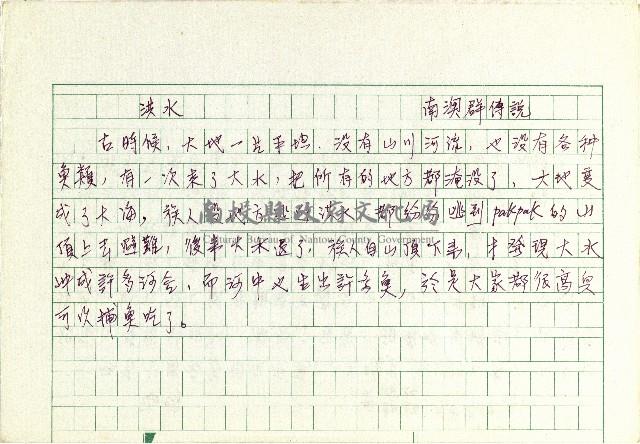 洪水 南澳群傳說
古時候，大地一片平坦．沒有山川河流，也沒有各種
魚類，有一次來了大水，把所有的地方都淹沒了，大地變
成了大海，族人 洪水 都紛紛逃到 pakpak 的山
頂上去避難，後來大水退了，族人自山頂下來，才發現大水
沖成許多河谷，而河中也生出許多魚，於是大家都很高興
可以捕魚吃了。
南投縣政府文化局
Cultural Bureau of Nantou County Government